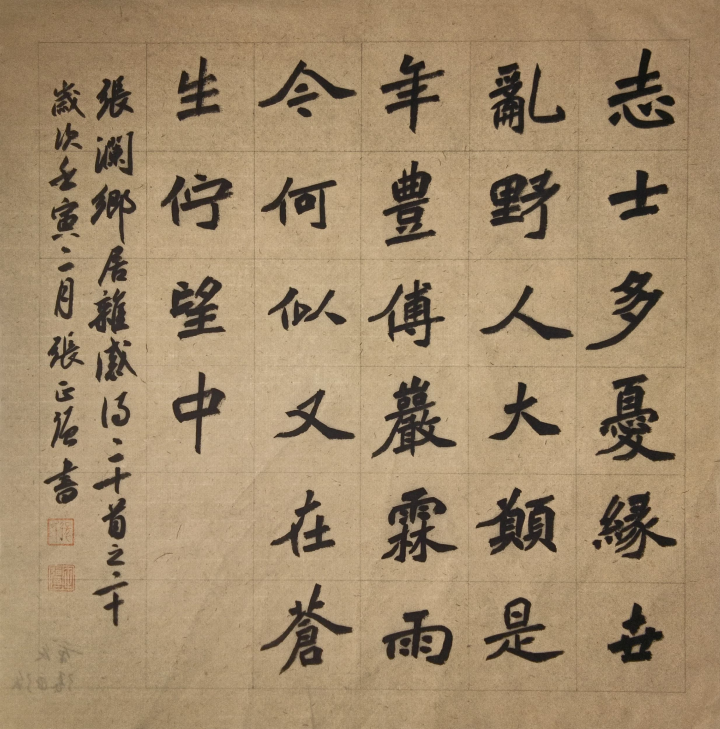 志士多憂緣世
亂野人大願是
年豊傅巖霖雨
今何似又在蒼
生佇望中
張瀾鄉居雜感詩二十首之二十
歲次壬寅二月張正書